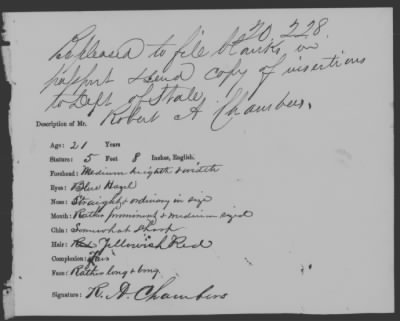 20.228.
Be pleased to file blanks on
passport & send copy of insertions
to Dept of State
Description of Mr. Robert A Chambers.
Age: 21 Years
Stature: 5 Feet 8 Inches, English.
Forehead: Medium heighth & width
Eyes: Blue Hazel
Nose: Straight & ordinary in size
Mouth: Rather prominent & medium sized
Chin: Somewhat sharp
Hair: Red Yellowish Red
Complexion:
Face: Rather long &
Signature: R. A. Chambers